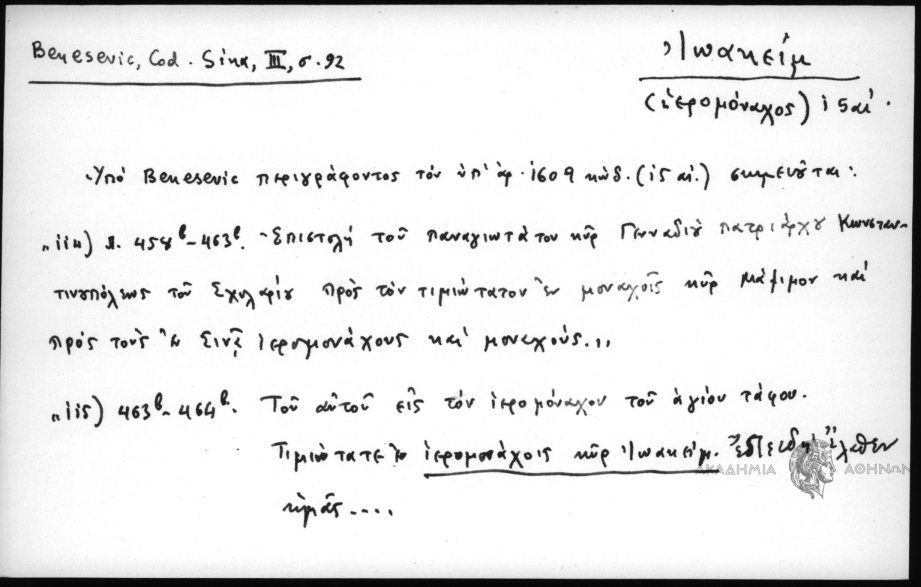 Benesevic, Cod. Sina, III, σ. 92
Ἰωακείμ
(ἱερομόναχος) ι5αἰ.
Ὑπό Benesevic περιγράφοντος τόν ὑπ' ἀρ. 1609 κώδ. (ι5 αἰ.) σημειοῦται:
458β-463β. Ἐπιστολή τοῦ παναγιωτάτου κῦρ Γενναδίου πατριάρχου Κωνσταν-
τινουπόλεως τοῦ Σχολαρίου πρὸς τόν τιμιώτατον ἐν μοναχοῖς κῦρ Μάξιμον καί
πρός τοὺς ἐν Σινᾷ ἱερομονάχους καί μοναχούς..,,
463β-464β. Τοῦ αὐτοῦ εἰς τόν ἱερομόναχον τοῦ ἁγίου τάφου.
Τιμιώτατε ἐν ἱερομονάχοις κῦρ Ἰωακείμ.
ΑΚΑΔΗΜΙΑ ΑΘΗΝΩΝ
ἡμᾶς....